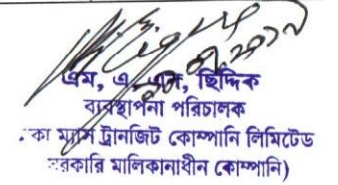 এম, এ, এন, ছিদ্দিক
ব্যবস্থাপনা পরিচালক
কা ম্যাস ট্রানজিট কোম্পানি লিমিটেড
রকারি মালিকানাধীন কোম্পানি)